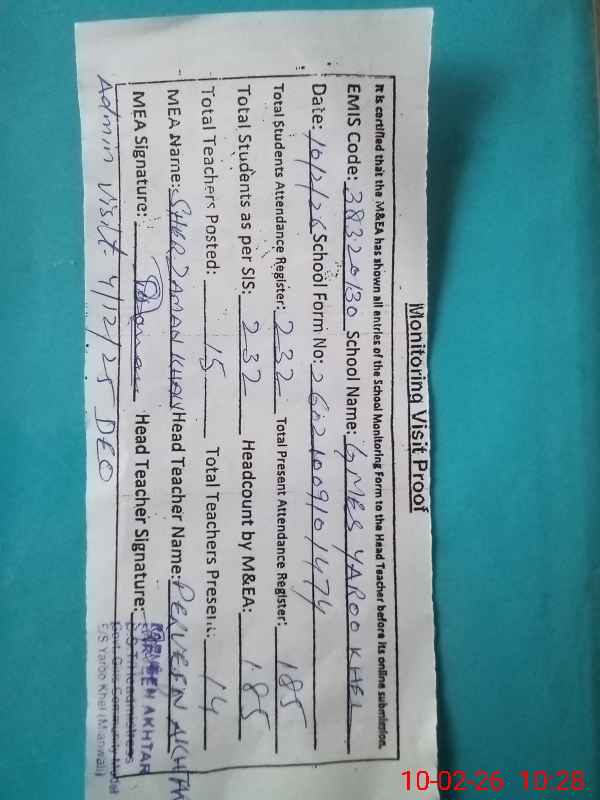 Monitoring Visit Proof
It is certified that the M&EA has shown all entries of the School Monitoring Form to the Head Teacher before its online submission.
EMIS Code: 38320130 School Name: GMES YAROO KHEL
Date: 10/2/26 School Form No: 26021009101474
Total Students Attendance Register: 232 Total Present Attendance Register: 185
Total Students as per SIS: 232 Headcount by M&EA: 185
Total Teachers Posted: 15 Total Teachers Present: 14
MEA Name: SHER ZAMAN KHAN Head Teacher Name: PERVEEN AKHTAR
MEA Signature: Head Teacher Signature:
Admin Visit. 4/12/25 DEO
PERVEEN AKHTAR
Govt. Girls Community Model
E/S Yaroo Khel (Mianwali)
10-02-26 10:28